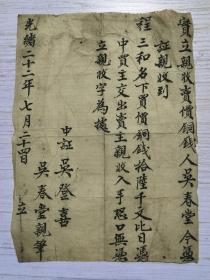 實立親收賣價銅錢人吳春堂今蒙
証親收到
程三和名下買價銅錢拾陸千文比日憑
中買主交出賣主親收入手恐口無憑
立親收字為據
中証 吳登喜
吳春堂親筆
光緒二十二年七月二十四日 立